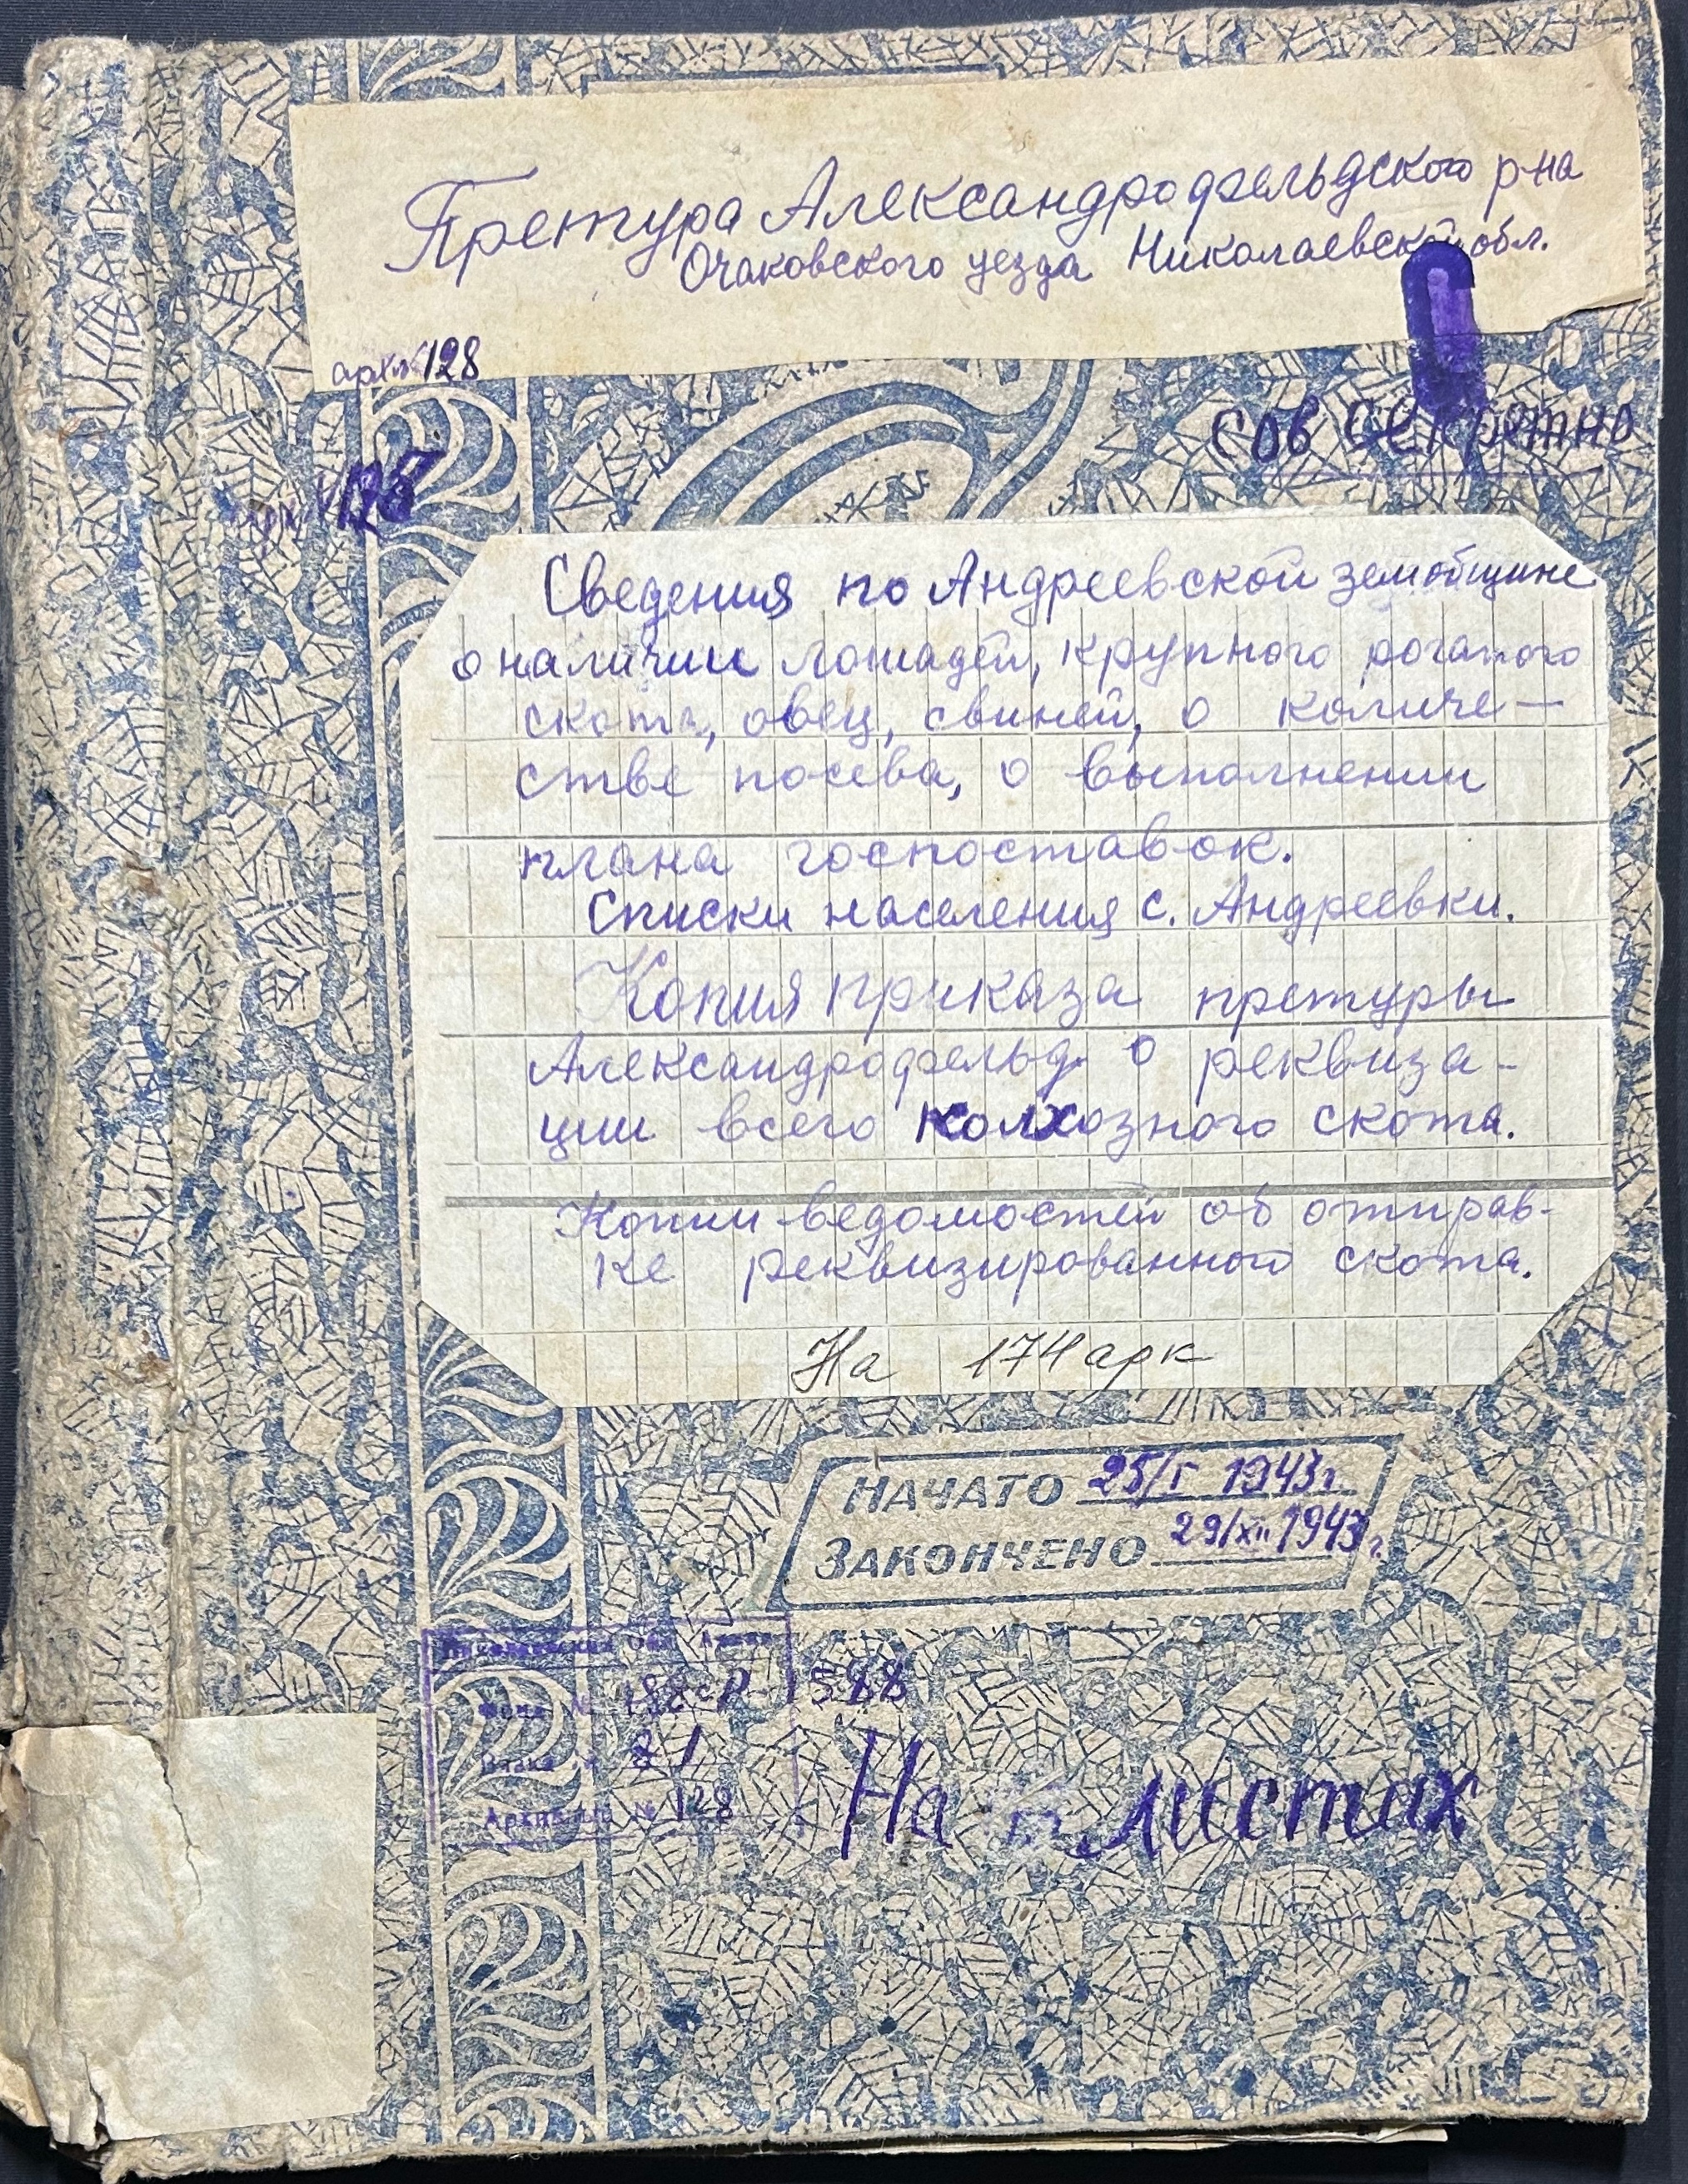 Претура Александрофельдского р-на
Очаковского уезда Николаевской обл.
арх.№128
Сов Секретно
128
Сведения по Андреевской земобщине
о наличии лошадей, крупного рогатого
скота, овец, свиней, о количе-
стве посева, о выполнении
плана госпоставок.
Списки населения с. Андреевки.
Копия приказа претуры
Александрофельд. о реквиза-
ции всего колхозного скота.
Копии ведомостей об отправ-
ке реквизированного скота.
На 174 арк
НАЧАТО 25/I 1943 г.
ЗАКОНЧЕНО 29/XII 1943 г.
Николаевский Обл. Архив
Фонд №
Вязка № 21
Архивный № 128
На листах